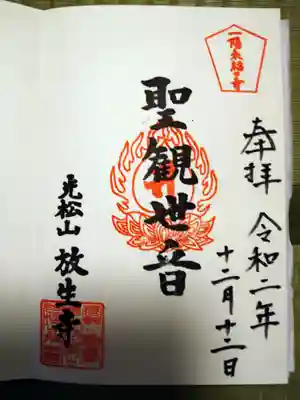 一陽来福の寺
奉拝
令和二年
十二月十二日
聖観世音
光松山 放生寺